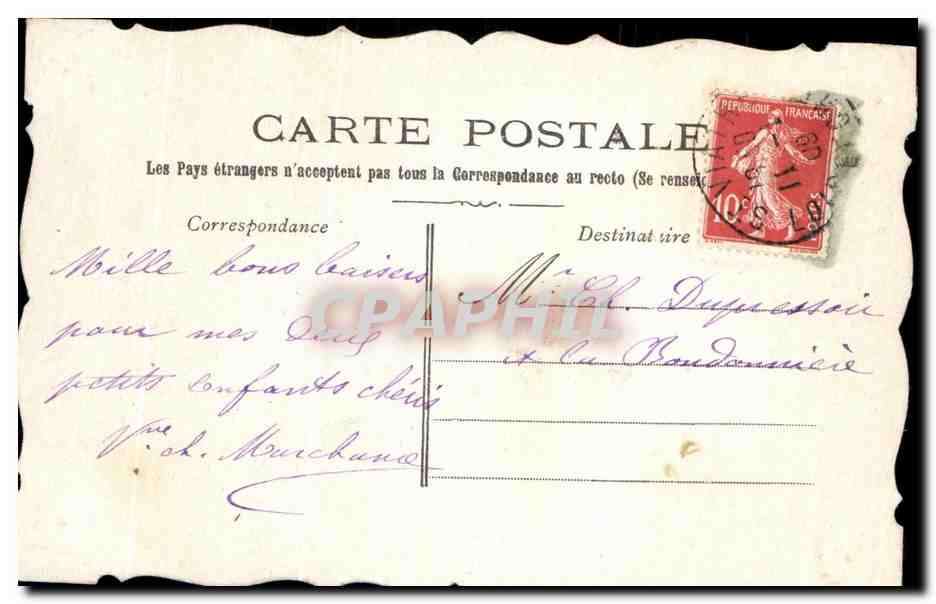 CARTE POSTALE
Les Pays étrangers n'acceptent pas tous la Correspondance au recto (Se rensei
RÉPUBLIQUE FRANÇAISE
10c
Correspondance
Destinataire
Mille bons baisers
pour mes deux
petits enfants chéris
Vve ch. Marchand
Mr Ch. Dupressoir
à la Boudonnière
CPAPHIL